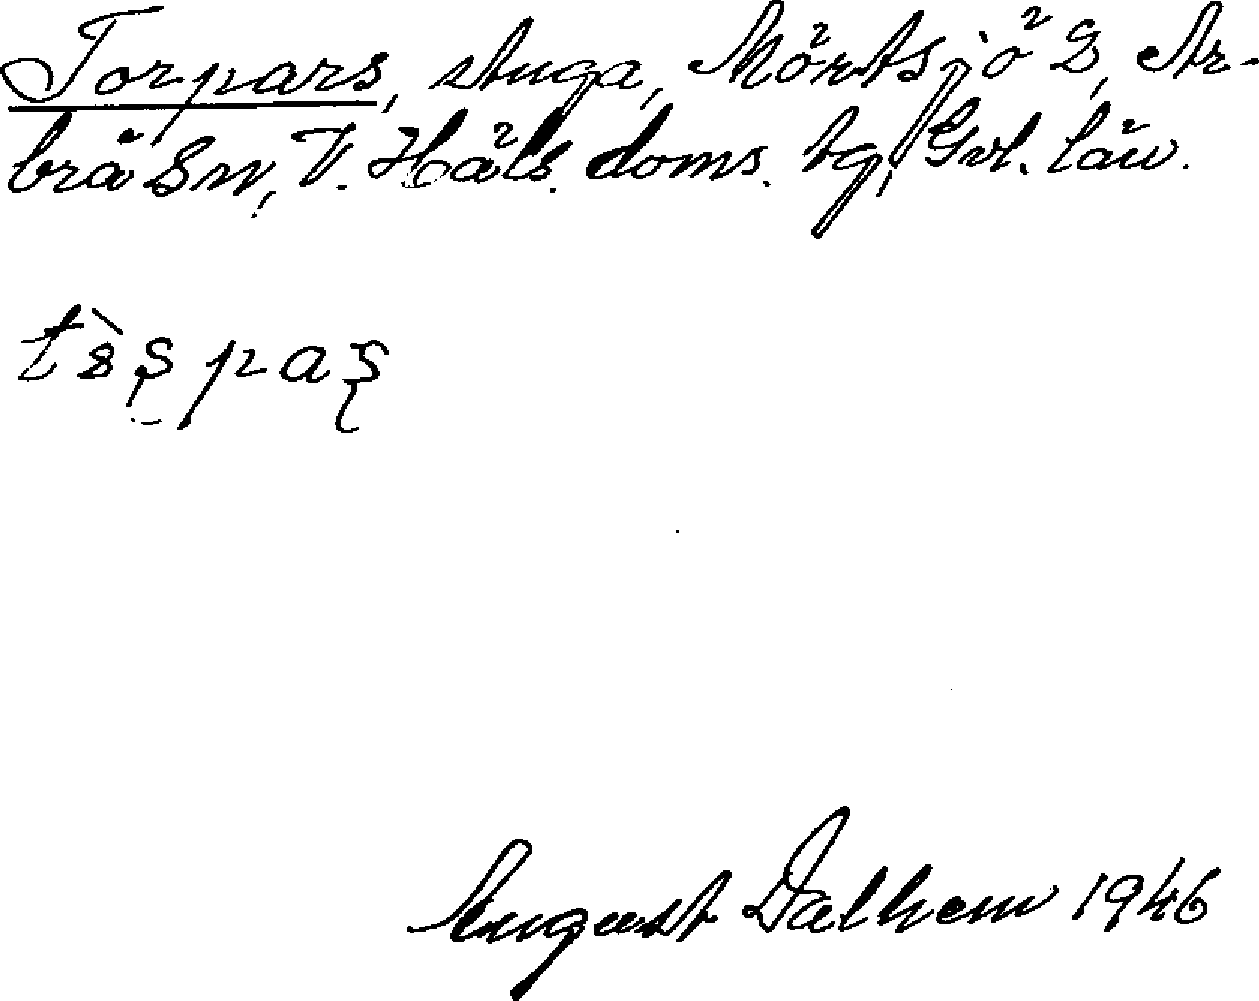 Torpars, stuga, Mörtsjö 2, Ar-
brå Sn, V. Häls. doms. tg, Gvl. län.
August Dalhem 1946